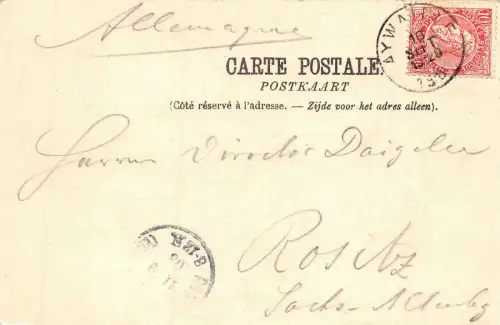 Allemagne
AYWAILLE
10
CARTE POSTALE
POSTKAART
(Côté réservé à l'adresse. — Zijde voor het adres alleen).
Herrn Director Daigeler
Rositz
Sachs-Altenbg
8-12 V.